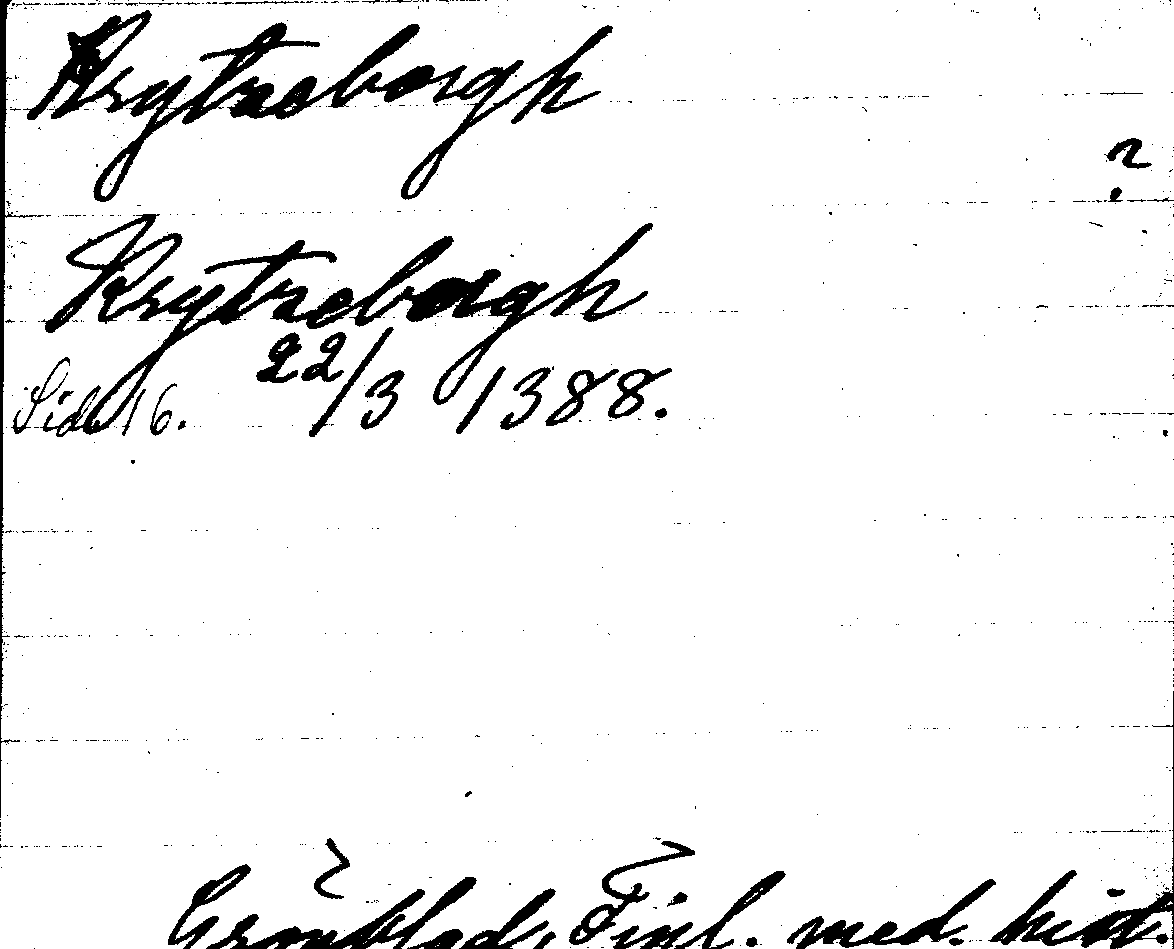 Krytzeborgh
?
Krytzeborgh
22/3 1388.
Sid. 16.
Grönblad, Finl. med. hist.